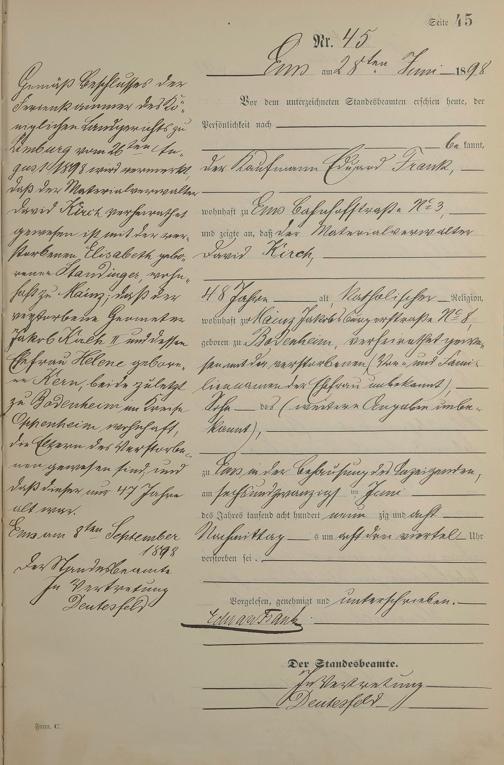 Seite 45
Nr. 45
Ems am 28ten Juni 1898
Vor dem unterzeichneten Standesbeamten erschien heute, der
Persönlichkeit nach
bekannt,
der Kaufmann Eduard Frank,
wohnhaft zu Ems Bahnhofstraße No 3,
und zeigte an, daß der Materialverwalter
David Kirch,
48 Jahre alt, katholischer Religion,
wohnhaft zu Mainz, No 8,
geboren zu Bodenheim, verheirathet gewe-
sen mit der verstorbenen (Vor- und Fami-
liennamen der Ehefrau unbekannt),
Sohn des (weitere Angaben unbe-
kannt),
zu Ems in der Behausung des Anzeigenden,
am sechsundzwanzigsten Juni
des Jahres tausend acht hundert neunzig und acht
Nachmittags um acht drei viertel Uhr
verstorben sei.
Vorgelesen, genehmigt und unterschrieben.
Eduard Frank
Der Standesbeamte.
In Vertretung
Deutesfeld
Gemäß Beschlusses der
Ferienkammer des Kö-
niglichen Landgerichts zu
Limburg vom 26ten Au-
gust 1898 wird vermerkt,
daß der Materialverwalter
David Kirch verheirathet
gewesen ist mit der ver-
storbenen Elisabeth gebo-
renen Standinger, wohn-
haft zu Mainz; daß der
verstorbene Geometer
Jakob II und dessen
Ehefrau Helene gebore-
ne Kern, beide zuletzt
zu Bodenheim im Kreise
Oppenheim, wohnhaft,
die Eltern des Verstorbe-
nen gewesen sind und
daß dieser nur 47 Jahre
alt war.
Ems am 8ten September
1898
Der Standesbeamte
In Vertretung
Deutesfeld
Form. C.